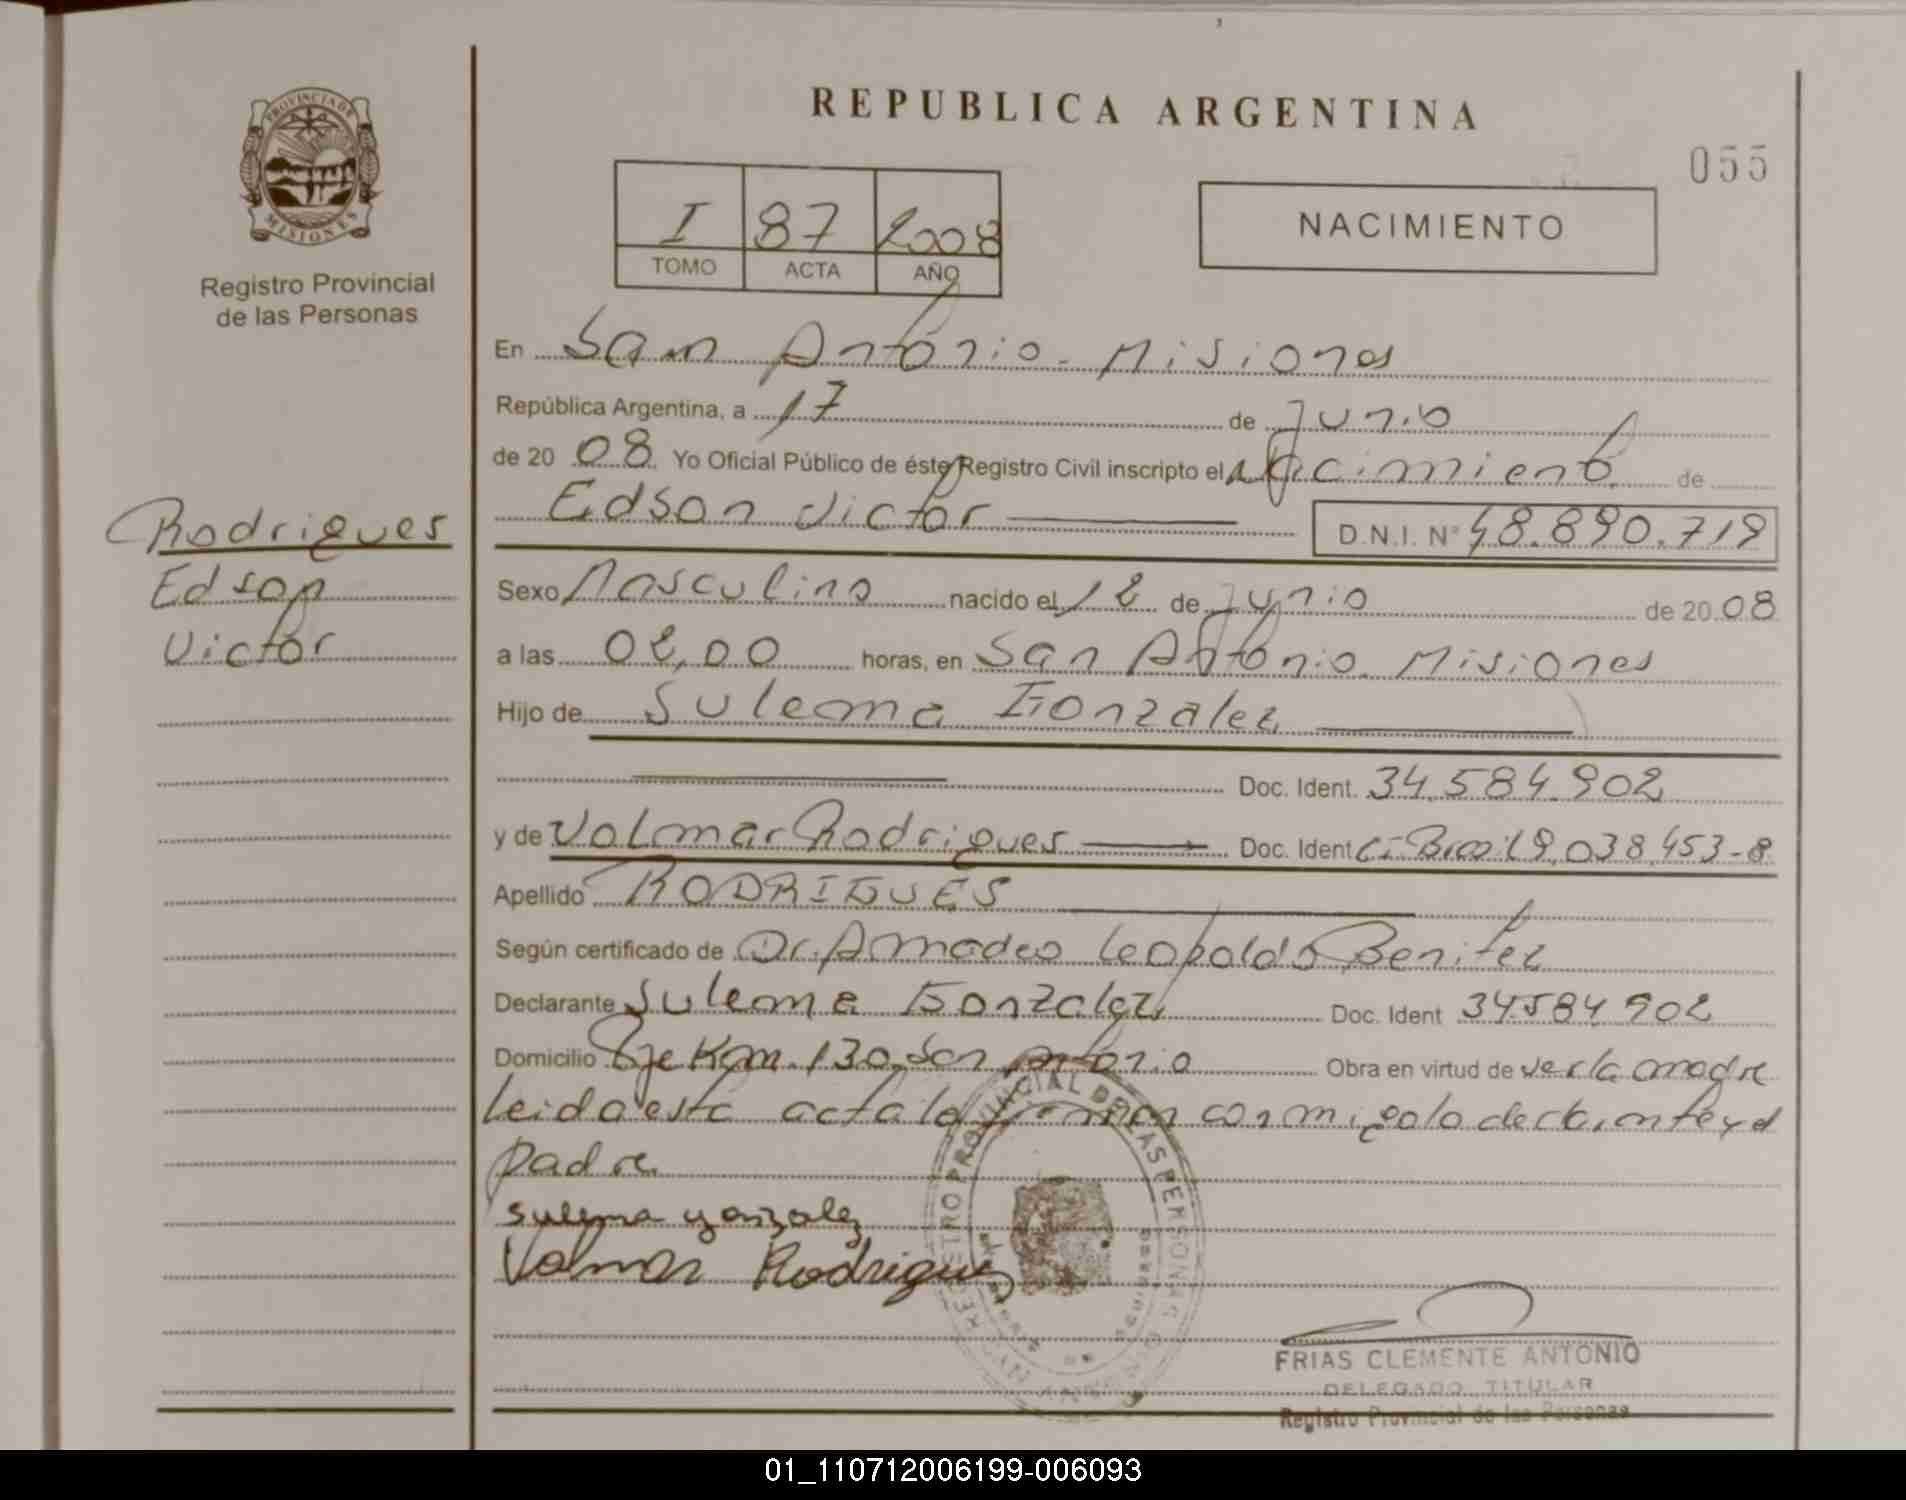 REPUBLICA ARGENTINA
055
PROVINCIA DE
MISIONES
Registro Provincial
de las Personas
I 87 2008
TOMO ACTA AÑO
NACIMIENTO
En San Antonio - Misiones
República Argentina, a 17 de Junio
de 20 08 Yo Oficial Público de éste Registro Civil inscripto el nacimiento de
Edson Victor D.N.I. Nº 48.890.719
Rodrigues
Edson
Victor
Sexo Masculino nacido el 12 de Junio de 20 08
a las 02,00 horas, en San Antonio. Misiones
Hijo de Sulema Gonzalez
Doc. Ident. 34.584.902
y de Volmar Rodrigues Doc. Ident C.I. Brasil 9.038.453-8
Apellido RODRIGUES
Según certificado de Dr. Amadeo Leopoldo Benitez
Declarante Sulema Gonzalez Doc. Ident 34.584.902
Domicilio Pje Km. 130. San Antonio Obra en virtud de ser la madre
leida esta acta la firman conmigo la declarante y el
Padre
sulema gonzalez
Volmar Rodrigues
REGISTRO PROVINCIAL DE LAS PERSONAS
FRIAS CLEMENTE ANTONIO
DELEGADO TITULAR
Registro Provincial de las Personas
01_110712006199-006093